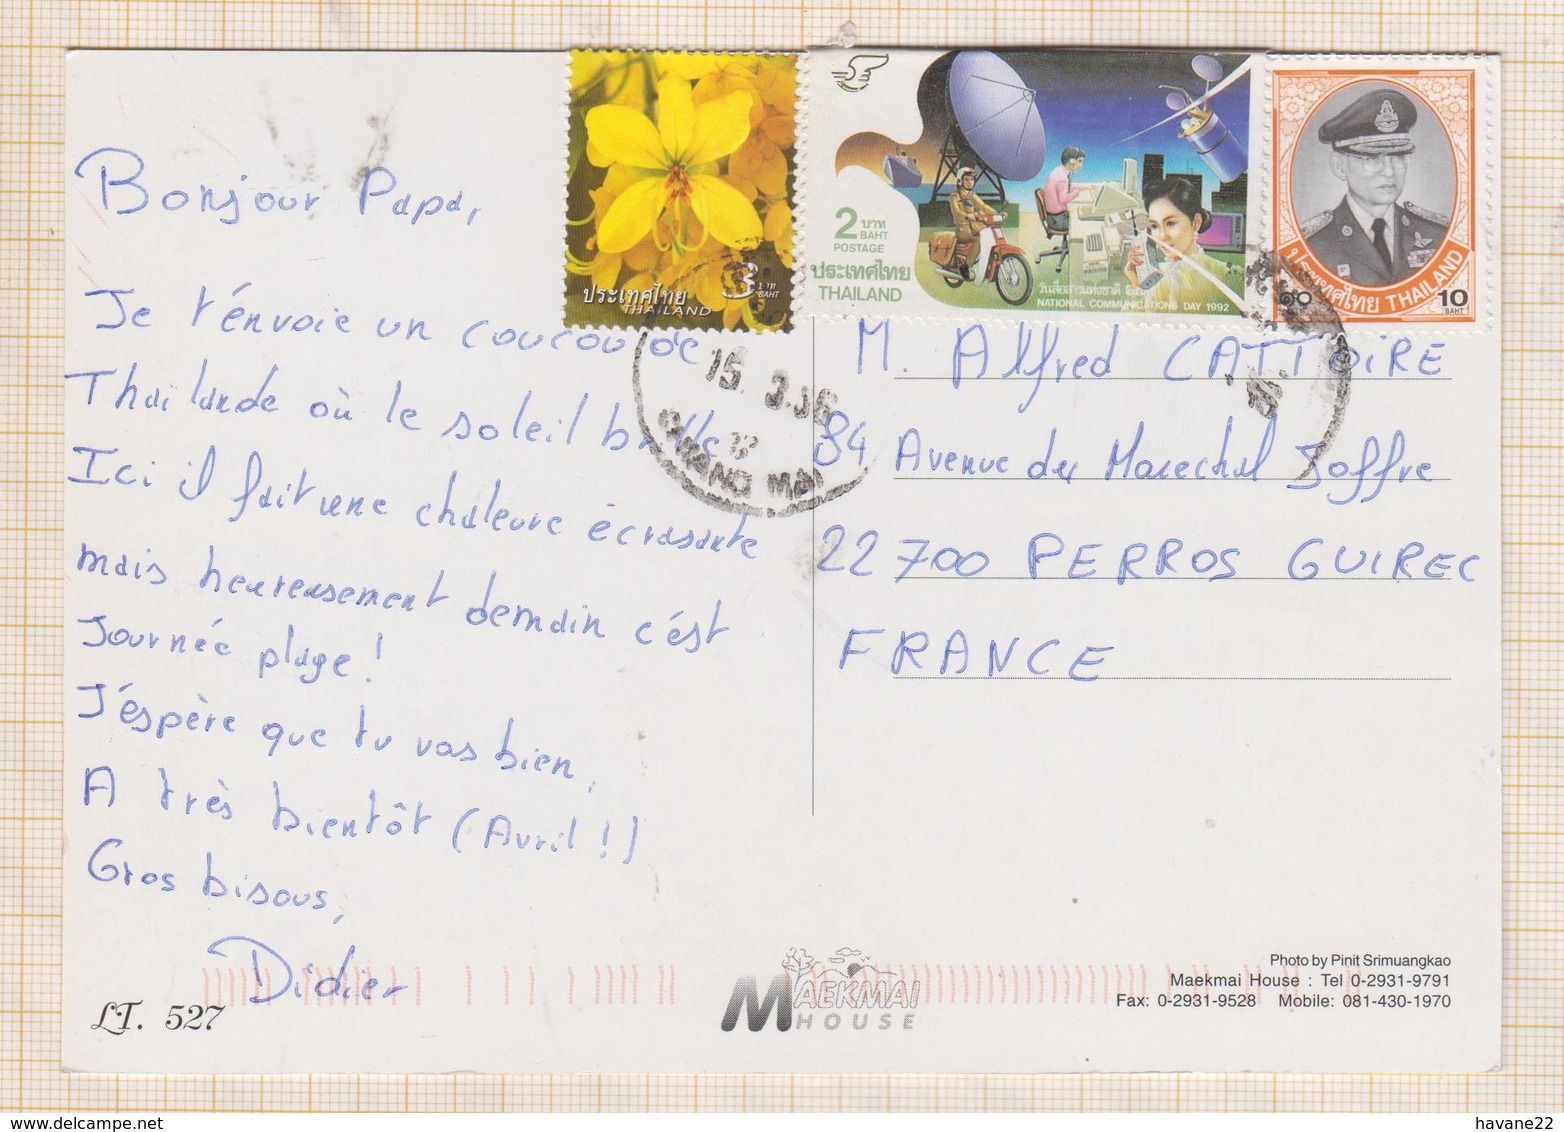 Bonjour Papa,
Je t'envoie un coucou de
Thaïlande où le soleil brille
Ici il fait une chaleure écrasante
mais heureusement demain c'est
Journée plage !
J'éspère que tu vas bien,
A très bientôt (Avril !)
Gros bisous,
Didier
LT. 527
ประเทศไทย
THAILAND
3 บาท
BAHT
2 บาท
BAHT
POSTAGE
ประเทศไทย
THAILAND
วันสื่อสารแห่งชาติ ๒๕๓๕
NATIONAL COMMUNICATIONS DAY 1992
ประเทศไทย THAILAND
๑๐ 10
BAHT
15. 3.06
CHIANG MAI
M. Alfred CATTOIRE
84 Avenue du Marechal Joffre
22700 PERROS GUIREC
FRANCE
MAEKMAI
HOUSE
Photo by Pinit Srimuangkao
Maekmai House : Tel 0-2931-9791
Fax: 0-2931-9528 Mobile: 081-430-1970
havane22